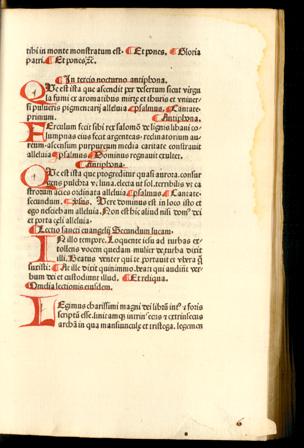 tibi in monte monstratum est. Et pones. Gloria
patri. Et pones.
In tercio nocturno. antiphona.
Que est ista que ascendit per desertum sicut virgu
la fumi ex aromatibus mirre et thuris et vniuer
si pulueris pigmentarij alleluia psalmus. Cantate
primum. Antiphona.
Ferculum fecit sibi rex salomon de lignis libani co
lumpnas eius fecit argenteas: reclinatorium au
reum: ascensum purpureum media caritate constrauit
alleluia psalmus Dominus regnauit exultet.
Antiphona.
Que est ista que progreditur quasi aurora. consur
gens pulchra vt luna. electa ut sol. terribilis vt ca
strorum acies ordinata alleluia psalmus Cantate
secundum. Vere dominus est in loco isto et
ego nesciebam alleluia. Non est hic aliud nisi dom' dei
et porta celi alleluia
Lectio sancti euangelij Secundum lucam.
In illo tempore. Loquente iesu ad turbas ex
tollens vocem quedam mulier de turba dixit
illi. Beatus venter qui te portauit et vbera que
suxisti: At ille dixit quinimmo. beati qui audiunt ver
bum dei et custodiunt illud. Et reliqua.
Omelia lectionis eiusdem.
Legimus charissimi magni dei librum intus et foris
scriptum esse. limitamque intrinsecus et extrinsecus
archam in qua mansiuncule et tristega. legimus
6